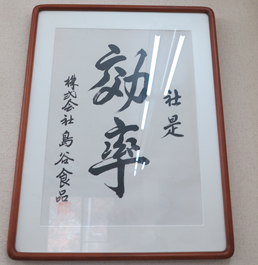 社是
効率
株式会社鳥谷食品